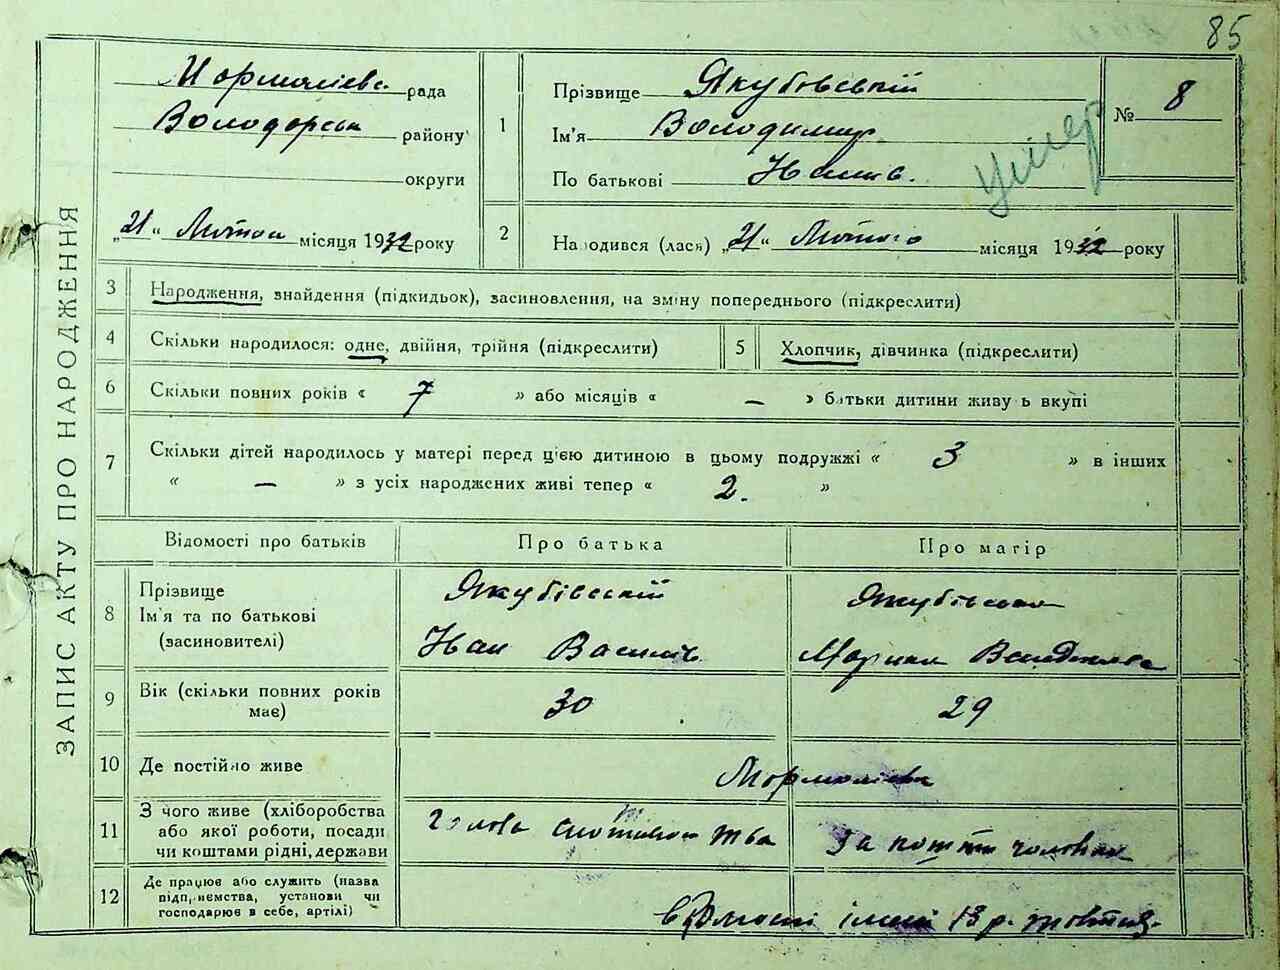 85
ЗАПИС АКТУ ПРО НАРОДЖЕННЯ
рада
Володарськ району
округи
„21“ Лютого місяця 1932 року
1
Прізвище Якубівський
Ім'я Володимир
По батькові Іванів.
№ 8
умер
2
Народився (лася) „21“ Лютого місяця 1932 року
3 Народження, знайдення (підкидьок), засиновлення, на зміну попереднього (підкреслити)
4 Скільки народилося: одне, двійня, трійня (підкреслити)
5 Хлопчик, дівчинка (підкреслити)
6 Скільки повних років « 7 » або місяців « — » батьки дитини живуть вкупі
7 Скільки дітей народилось у матері перед цією дитиною в цьому подружжі « 3 » в інших
« — » з усіх народжених живі тепер « 2. »
Відомості про батьків Про батька Про матір
8 Прізвище
Ім'я та по батькові
(засиновителі)
Якубівський
Іван Василів
Якубівська
Марина
9 Вік (скільки повних років
має)
30 29
10 Де постійно живе
11 З чого живе (хліборобства
або якої роботи, посади
чи коштами рідні, держави
голова за кошти чоловіка
12 Де працює або служить (назва
підприємства, установи чи
господарює в себе, артілі)
імені 13 р. жовтня.